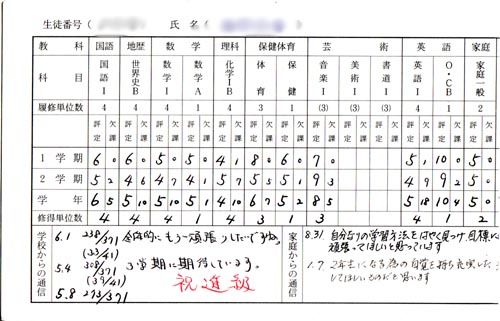 生徒番号( 氏名(
教科 国語 地歴 数学 理科 保健体育 芸術 英語 家庭
科目 国語I 世界史B 数学I 数学A 化学IB 体育 保健 音楽I 美術I 書道I 英語I O・CB 家庭一般
履修単位数 4 4 4 1 4 3 1 (3) (3) (3) 4 1 2
評定 欠課 評定 欠課 評定 欠課 評定 欠課 評定 欠課 評定 欠課 評定 欠課 評定 欠課 評定 欠課 評定 欠課 評定 欠課 評定 欠課 評定 欠課
1学期 6 0 6 0 5 0 5 0 4 1 8 0 6 0 7 0 5 1 10 0 5 0
2学期 5 2 4 6 4 7 4 1 5 7 5 5 5 1 9 3 4 9 9 2 5 0
学年 6 5 5 10 5 10 5 1 4 10 6 7 5 2 8 5 5 18 10 4 5 0
修得単位数 4 4 4 1 4 3 1 3 4 1 2
学校からの通信
6.1 238/371 全体的にもう一頑張りしたいですね。
(33/41)
5.4 308/371 3学期に期待しています。
(39/41)
祝進級
5.8 273/371
家庭からの通信
8.31 自分なりの学習方法をはやく見つけ、目標に
頑張ってほしいと思っています
1.7 2年生になる為の自覚を持ち充実した
してほしいものだと思います